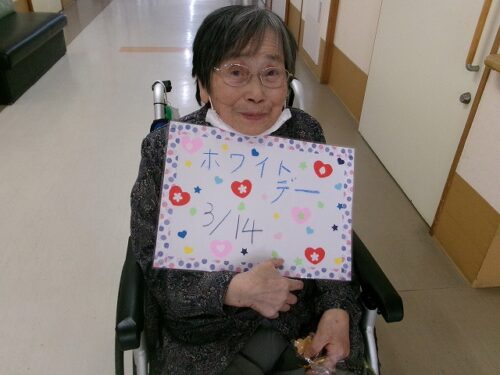 ホワイト
デー
3/14